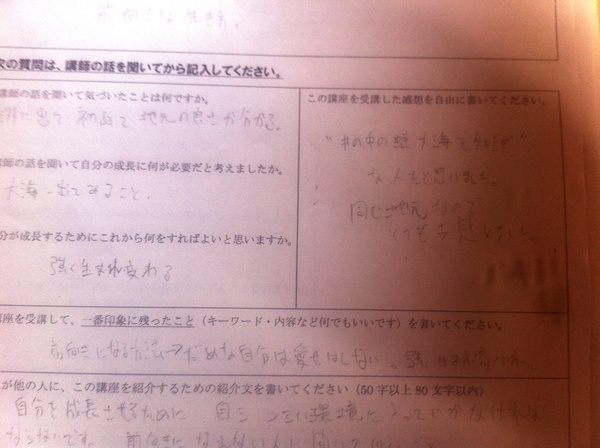 前向きな生き方。
次の質問は、講師の話を聞いてから記入してください。
講師の話を聞いて気づいたことは何ですか。
に出て 初めて 地元の良さが分かる。
講師の話を聞いて自分の成長に何が必要だと考えましたか。
大海へ出てみること。
分が成長するためにこれから何をすればよいと思いますか。
強く生まれ変わる
この講座を受講した感想を自由に書いてください。
"井の中の蛙 大海を知らず"
な人生と思いました。
同じ地元なので
とても共感しました。
講座を受講して、一番印象に残ったこと（キーワード・内容など何でもいいです）を書いてください。
前向きになる方法→だめな自分は愛せはしない。強く生まれ変わ
が他の人に、この講座を紹介するための紹介文を書いてください（50字以上80文字以内）
自分を成長させるために 自ら 環境に 入っていかなければ
ならないです。 前向きになれない人に